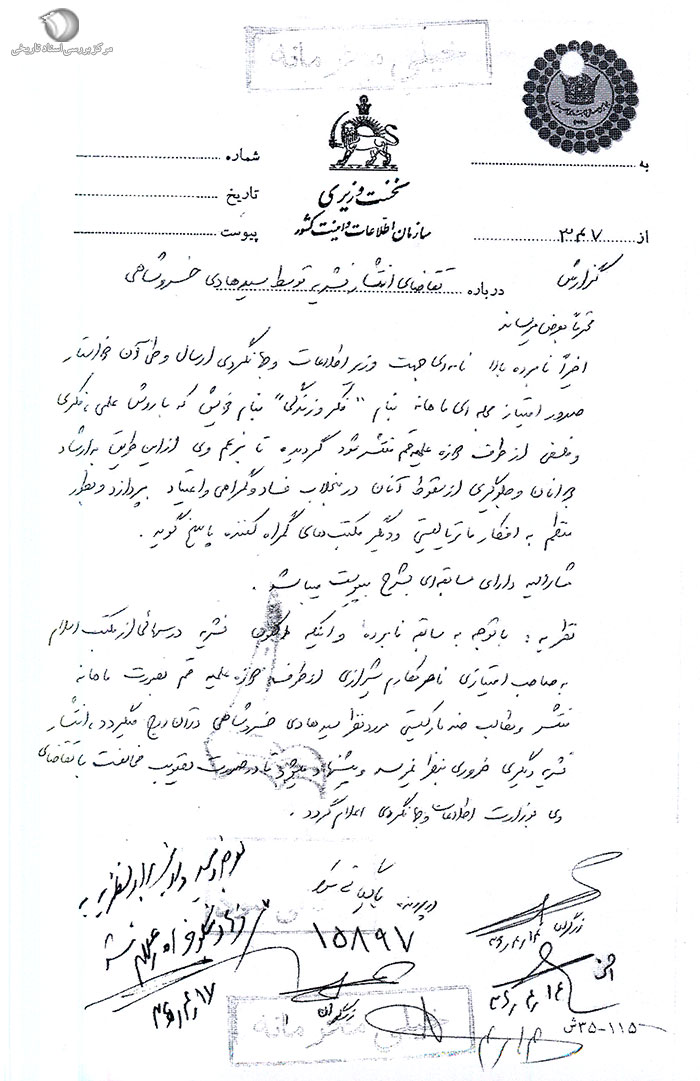 مرکز بررسی اسناد تاریخی
خیلی محرمانه
به
شماره
نخست وزیری
تاریخ
سازمان اطلاعات و امنیت کشور
پیوست
از ۳۴۷
گزارش
درباره تقاضای انتشار نشریه توسط سیدهادی خسروشاهی
محترماً بعرض میرساند
اخیراً نامبرده بالا نامه‌ای جهت وزیر اطلاعات و جهانگردی ارسال و طی آن خواستار
صدور امتیاز مجله‌ای ماهانه بنام "فکر و زندگی" بنام خویش که با روش علمی، فکری
و فلسفی از طرف حوزه علمیه قم منتشر شود گردیده تا بزعم وی از این طریق به ارشاد
جوانان و جلوگیری از سقوط آنان در منجلاب فساد و گمراهی و اعتیاد بپردازد و بطور
منظم به افکار ماتریالیستی و دیگر مکتب‌های گمراه کننده پاسخ گوید.
مشارالیه دارای سابقه‌ای بشرح پیوست میباشد.
نظریه: با توجه به سابقه نامبرده و اینکه هم‌اکنون نشریه درسهائی از مکتب اسلام
به صاحب امتیازی ناصر مکارم شیرازی از طرف حوزه علمیه قم بصورت ماهانه
منتشر و مطالب ضد مارکسیستی مورد نظر سیدهادی خسروشاهی در آن درج میگردد، انتشار
نشریه دیگری ضروری بنظر نمیرسد و پیشنهاد میشود تا در صورت تصویب مخالفت با تقاضای
وی بوزارت اطلاعات و جهانگردی اعلام گردد.
در پرونده بایگانی شود
۱۵۸۹۷
۳۶/۴/۱۴
۳۶/۴/۱۴
۳۶/۴/۱۷
۳۵-۱۱۵ش
خیلی محرمانه